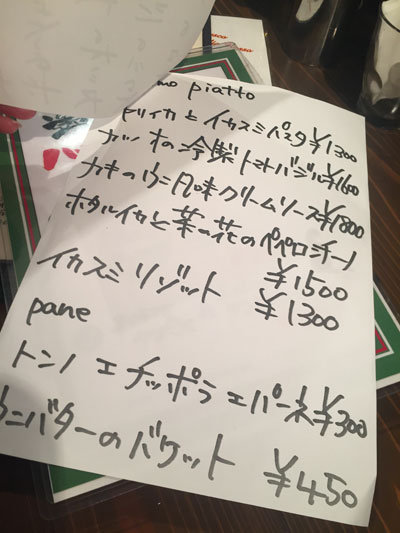 mo piatto
トリイカとイカスミパスタ ¥1300
カツオの冷製トマトバジル ¥1600
カキのウニ風味クリームソース ¥1800
ホタルイカと菜の花のペペロンチーノ
¥1500
イカスミリゾット ¥1300
pane
トンノ エ チッポラ エ パーネ ¥300
ウニバターのバケット ¥450